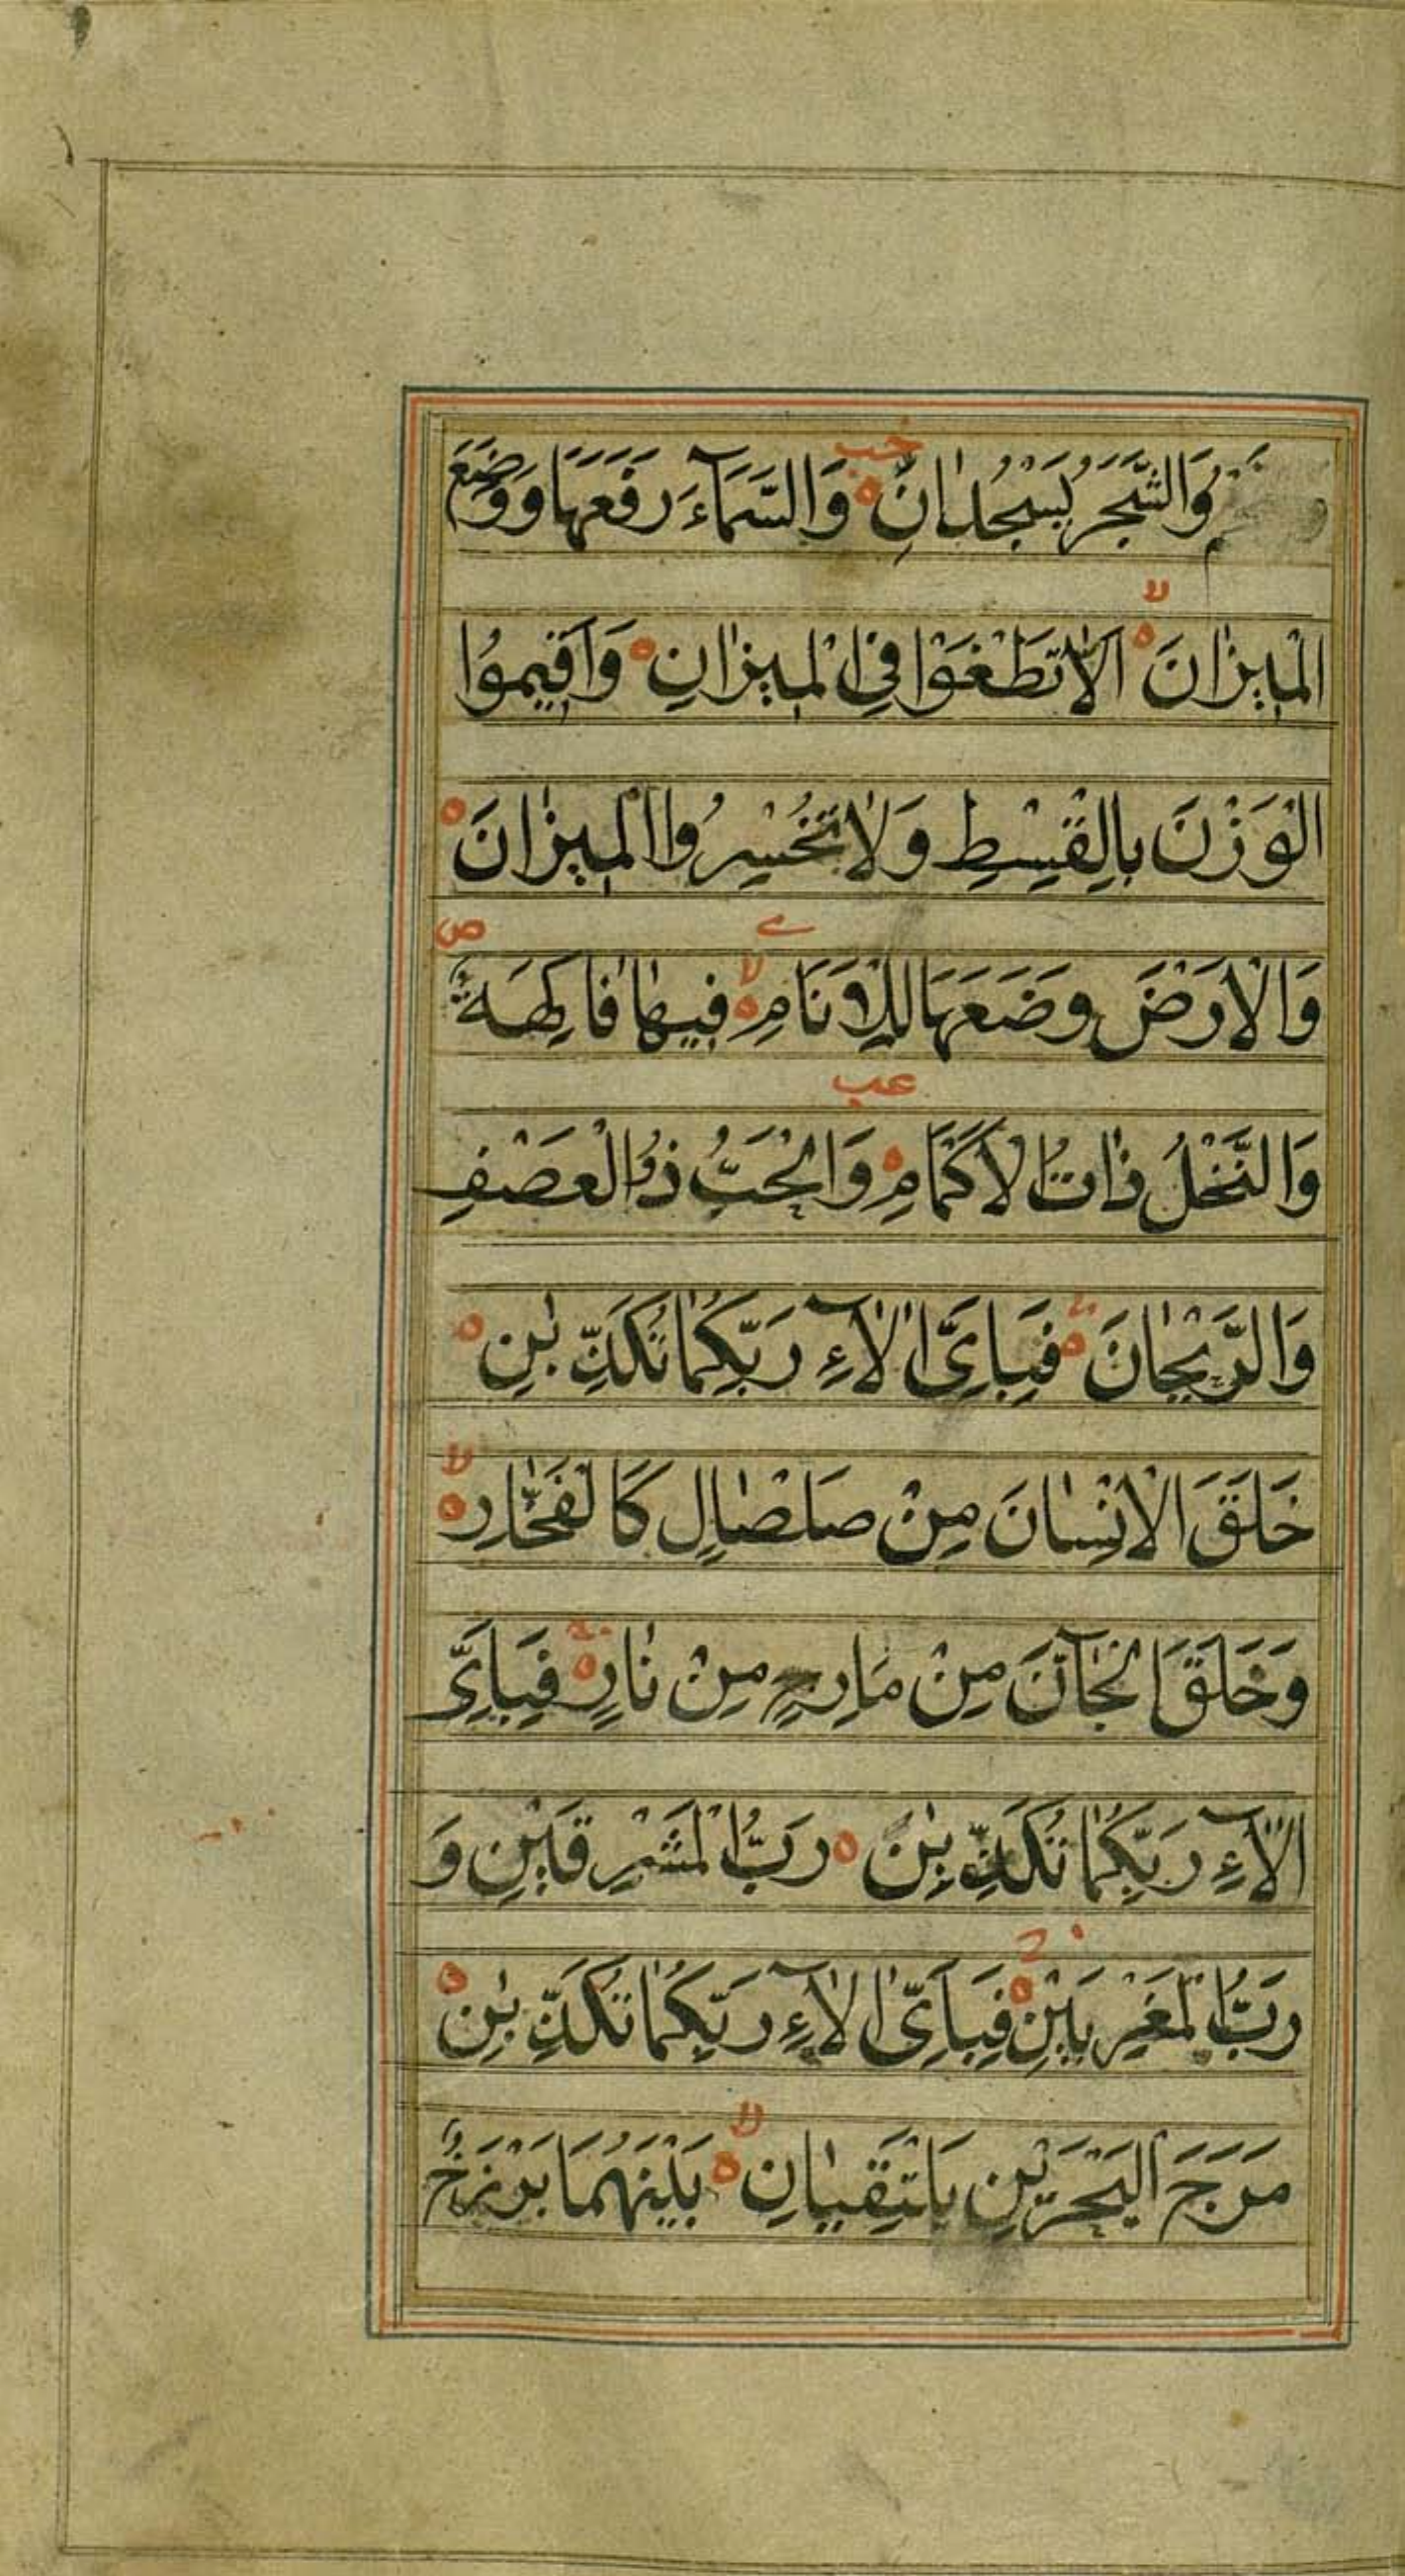 وَالشَّجَرُ يَسْجُدَانِ وَالسَّمَآءَ رَفَعَهَا وَوَضَعَ
الْمِيزَانَ اَلَّا تَطْغَوْا فِى الْمِيزَانِ وَاَقِيمُوا
الْوَزْنَ بِالْقِسْطِ وَلَا تُخْسِرُوا الْمِيزَانَ
وَالْاَرْضَ وَضَعَهَا لِلْاَنَامِ فِيهَا فَاكِهَةٌ
وَالنَّخْلُ ذَاتُ الْاَكْمَامِ وَالْحَبُّ ذُو الْعَصْفِ
وَالرَّيْحَانَ فَبِاَىِّ اٰلَآءِ رَبِّكُمَا تُكَذِّبٰنِ
خَلَقَ الْاِنْسَانَ مِنْ صَلْصَالٍ كَالْفَخَّارِ
وَخَلَقَ الْجَآنَّ مِنْ مَارِجٍ مِنْ نَارٍ فَبِاَىِّ
اٰلَآءِ رَبِّكُمَا تُكَذِّبٰنِ رَبُّ الْمَشْرِقَيْنِ وَ
رَبُّ الْمَغْرِبَيْنِ فَبِاَىِّ اٰلَآءِ رَبِّكُمَا تُكَذِّبٰنِ
مَرَجَ الْبَحْرَيْنِ يَلْتَقِيَانِ بَيْنَهُمَا بَرْزَخٌ